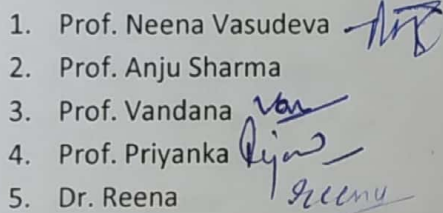 1. Prof. Neena Vasudeva
2. Prof. Anju Sharma
3. Prof. Vandana Van
4. Prof. Priyanka
5. Dr. Reena Reena